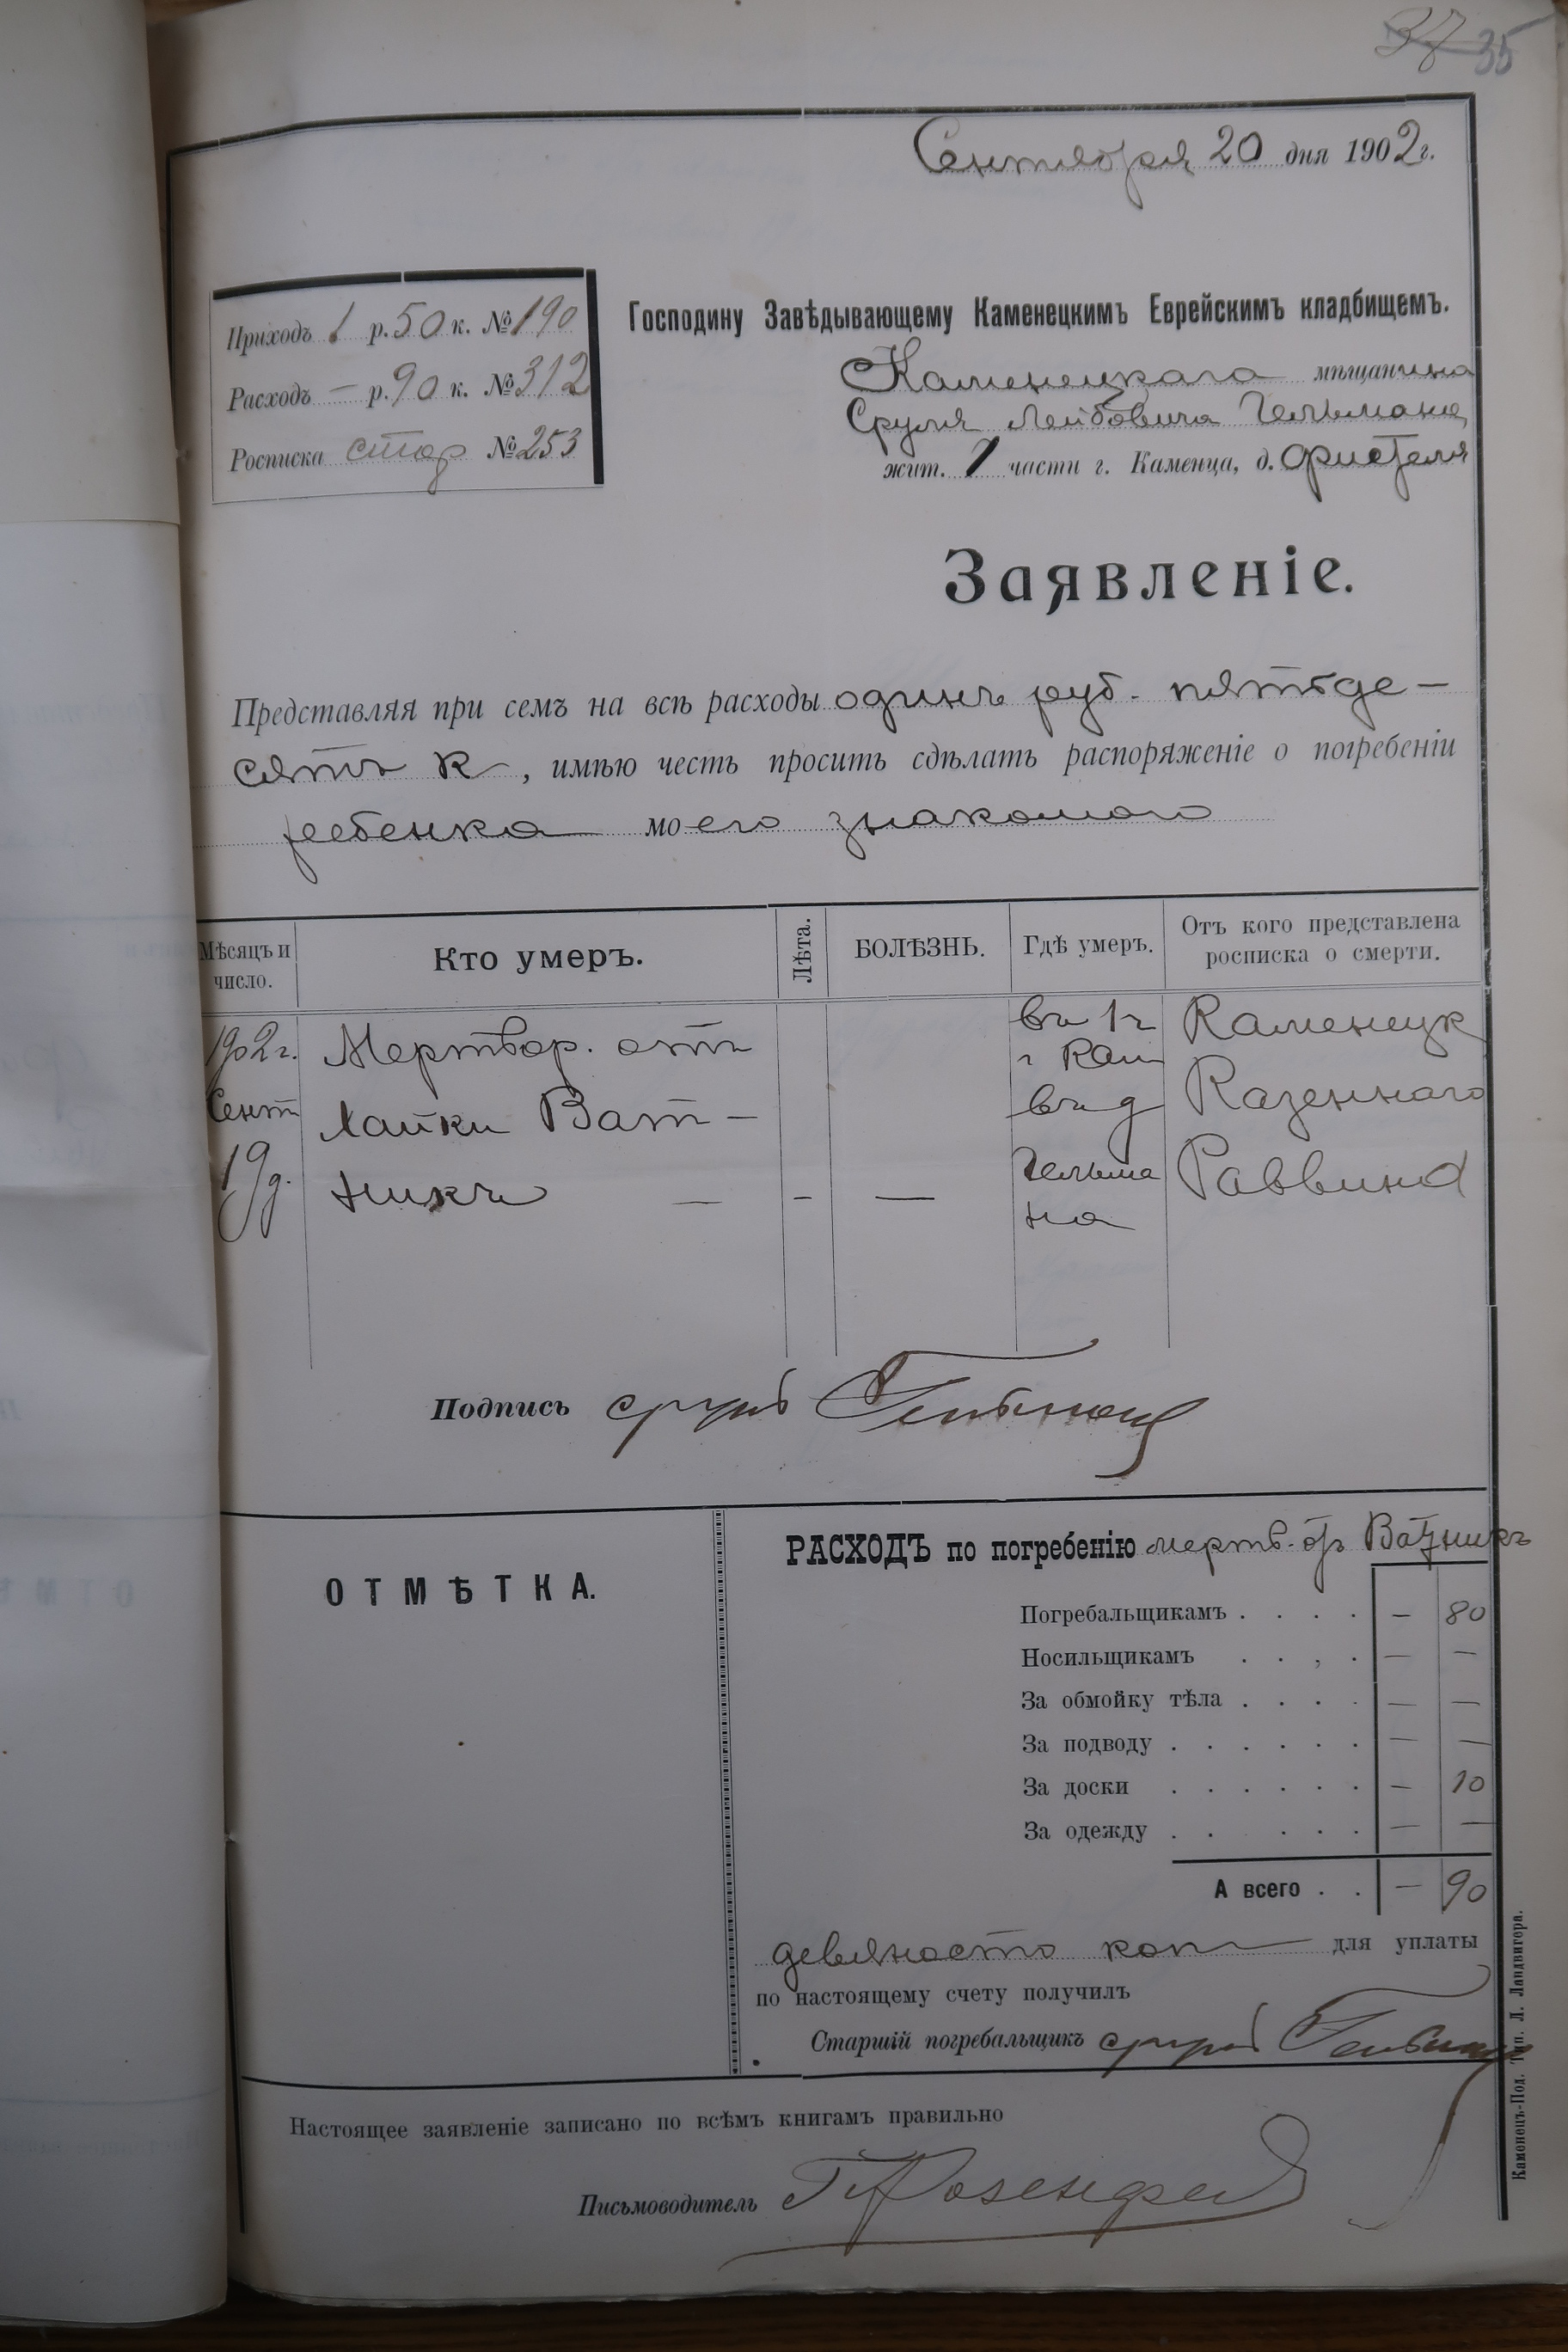 37 35
Сентября 20 дня 1902 г.
Приходъ 1 р. 50 к. № 190
Расходъ — р. 90 к. № 312
Росписка стор № 253
Господину Завѣдывающему Каменецкимъ Еврейскимъ кладбищемъ.
Каменецкаго мѣщанина
Сруля Лейбовича Гельмана
жит. 1 части г. Каменца, д.
Заявленіе.
Представляя при семъ на всѣ расходы одинъ руб. пятьде-
сятъ к, имѣю честь просить сдѣлать распоряженіе о погребеніи
ребенка моего знакомого
Мѣсяцъ и число.
Кто умеръ.
Лѣта.
БОЛѢЗНЬ.
Гдѣ умеръ.
Отъ кого представлена росписка о смерти.
1902 г.
Сент
19 д.
Мертвор. отъ
Хайки Ват-
никъ —
—
—
въ 1 ч
г Кам
въ д
Гельма
на
Каменецк
Казеннаго
Раввина
Подпись сруль Гельман
ОТМѢТКА.
РАСХОДЪ по погребенію мертв. отъ Ватникъ
Погребальщикамъ . . . . — 80
Носильщикамъ . . , . — —
За обмойку тѣла . . . . — —
За подводу . . . . . . — —
За доски . . . . . . — 10
За одежду . . . . . . — —
А всего . . — 90
девяносто коп для уплаты
по настоящему счету получилъ
Старшій погребальщикъ сруль Гельман
Настоящее заявленіе записано по всѣмъ книгамъ правильно
Письмоводитель Розенфел
Каменецъ-Под. Тип. Л. Ландвигера.